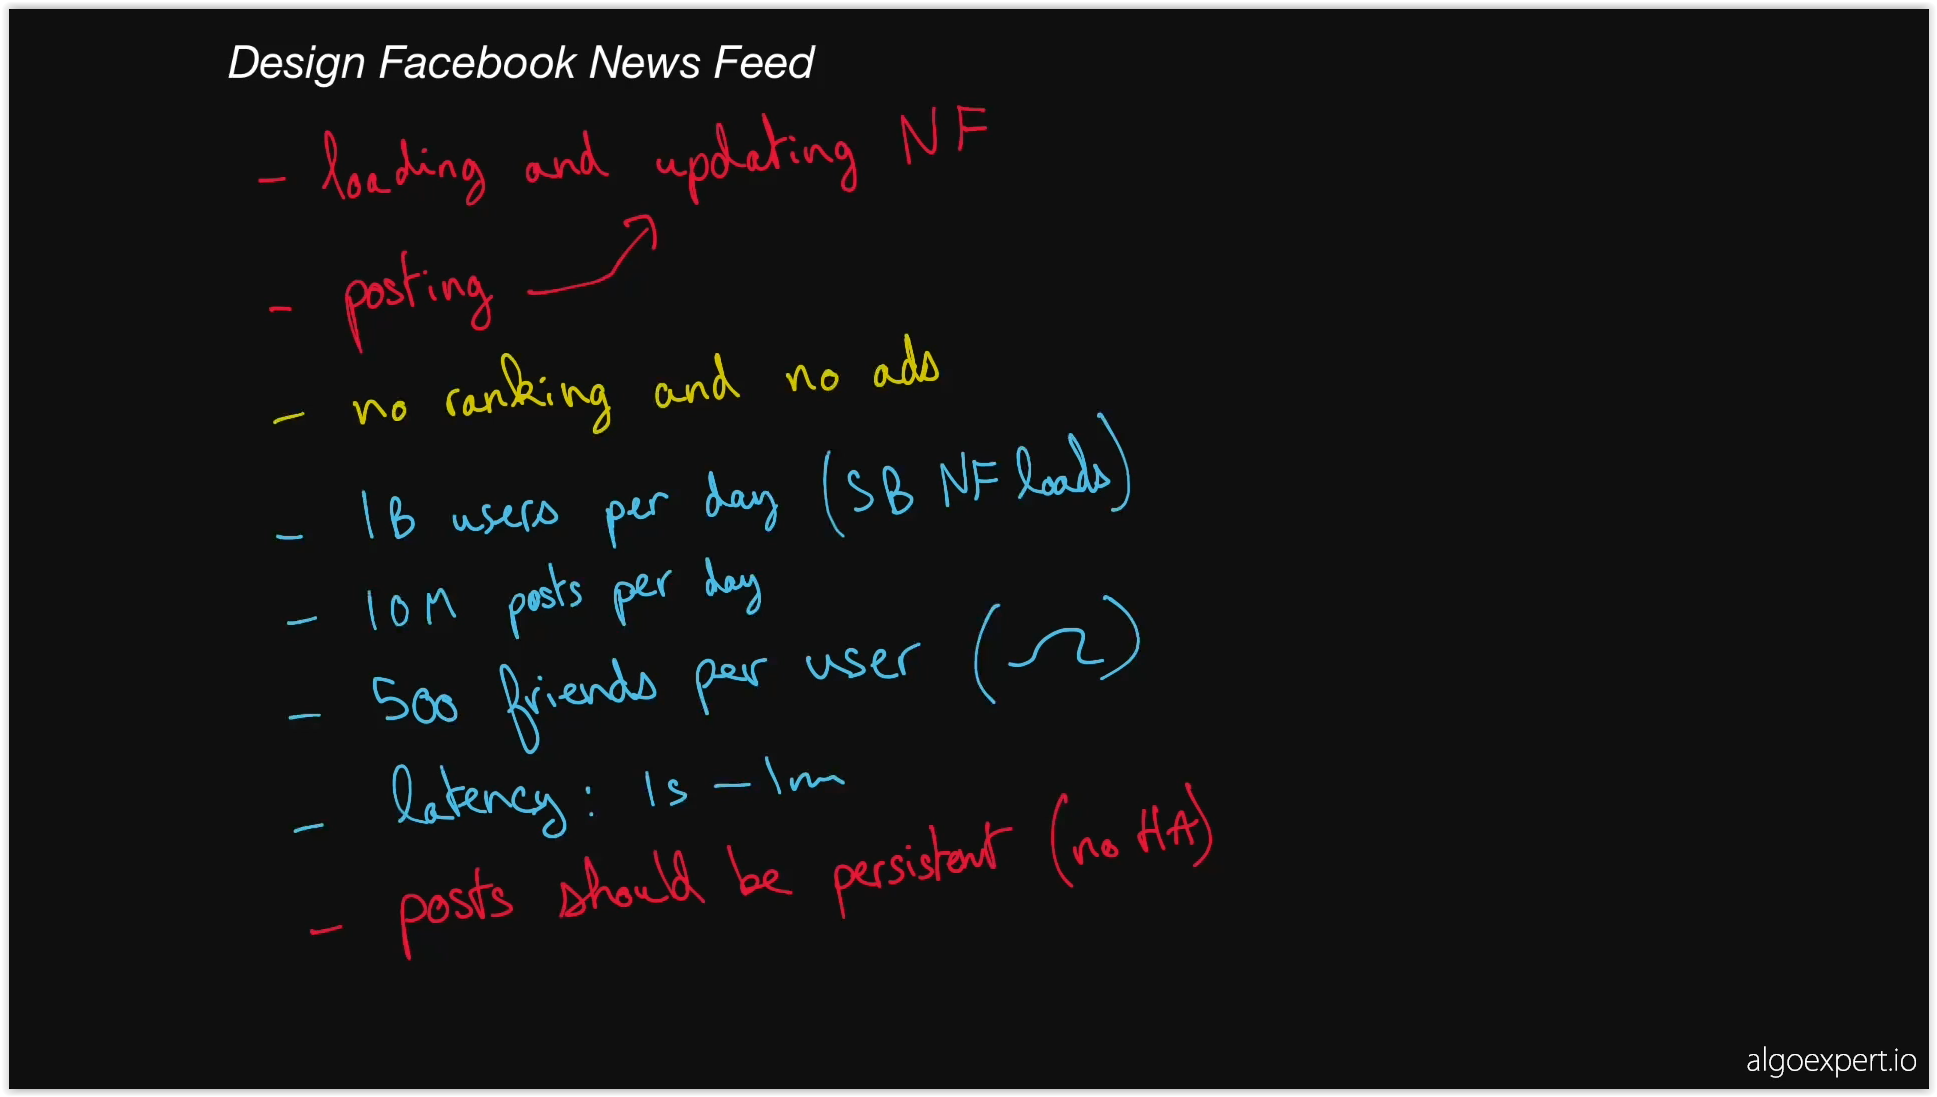 Design Facebook News Feed
- loading and updating NF
- posting
- no ranking and no ads
- 1B users per day (5B NF loads)
- 10M posts per day
- 500 friends per user
- latency: 1s - 1m
- posts should be persistent (no HA)
algoexpert.io